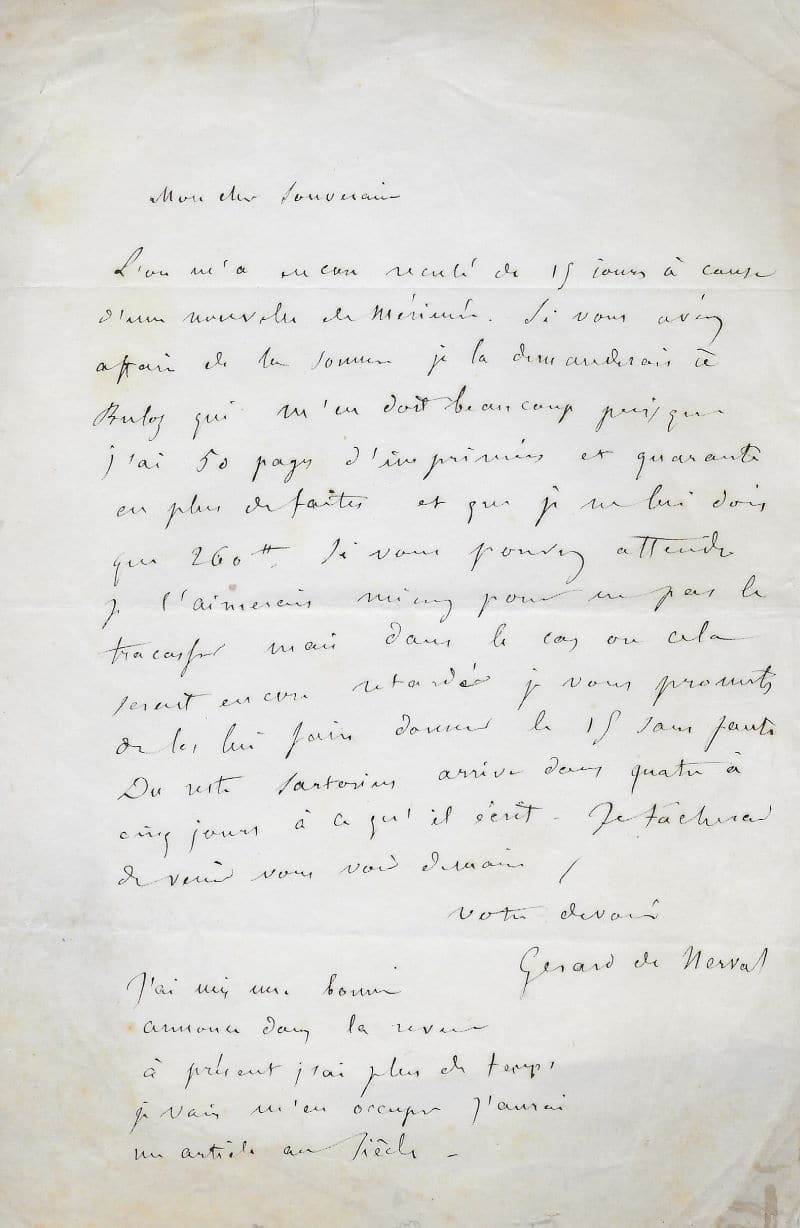 Mon cher Souverain
L'on m'a encore reculé de 15 jours à cause
d'une nouvelle de Mérimée. Si vous avéz
affaire de la somme je la demanderais à
Buloz qui m'en doit beaucoup puisque
j'ai 50 pages d'imprimées et quarante
en plus de faites et que je ne lui dois
que 260 ₶. Si vous pouvez attendre
je l'aimerais mieux pour ne pas le
tracasser mais dans le cas ou cela
serait encore retardée je vous promets
de les lui faire donner le 15 sans faute
Du reste Sartorius arrive dans quatre à
cinq jours à ce qu'il écrit. Je tâcherai
de venir vous voir demain
votre devoué
Gérard de Nerval
J'ai mis une bonne
annonce dans la revue
à présent j'ai plus de temps
je vais m'en occuper J'aurai
un article au Siècle –